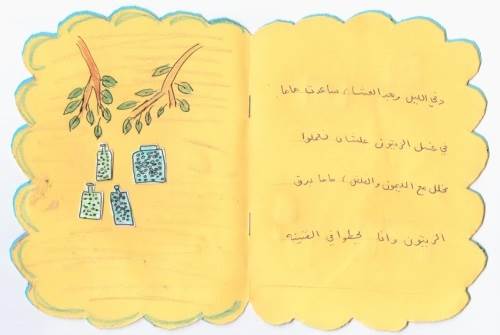 وفي الليل وبعد العشا، ساعدت ماما
في غسل الزيتون علشان نعملوا
مخلل مع الليمون والفلفل، ماما بترق
الزيتون وانا بحطوا في القنينه